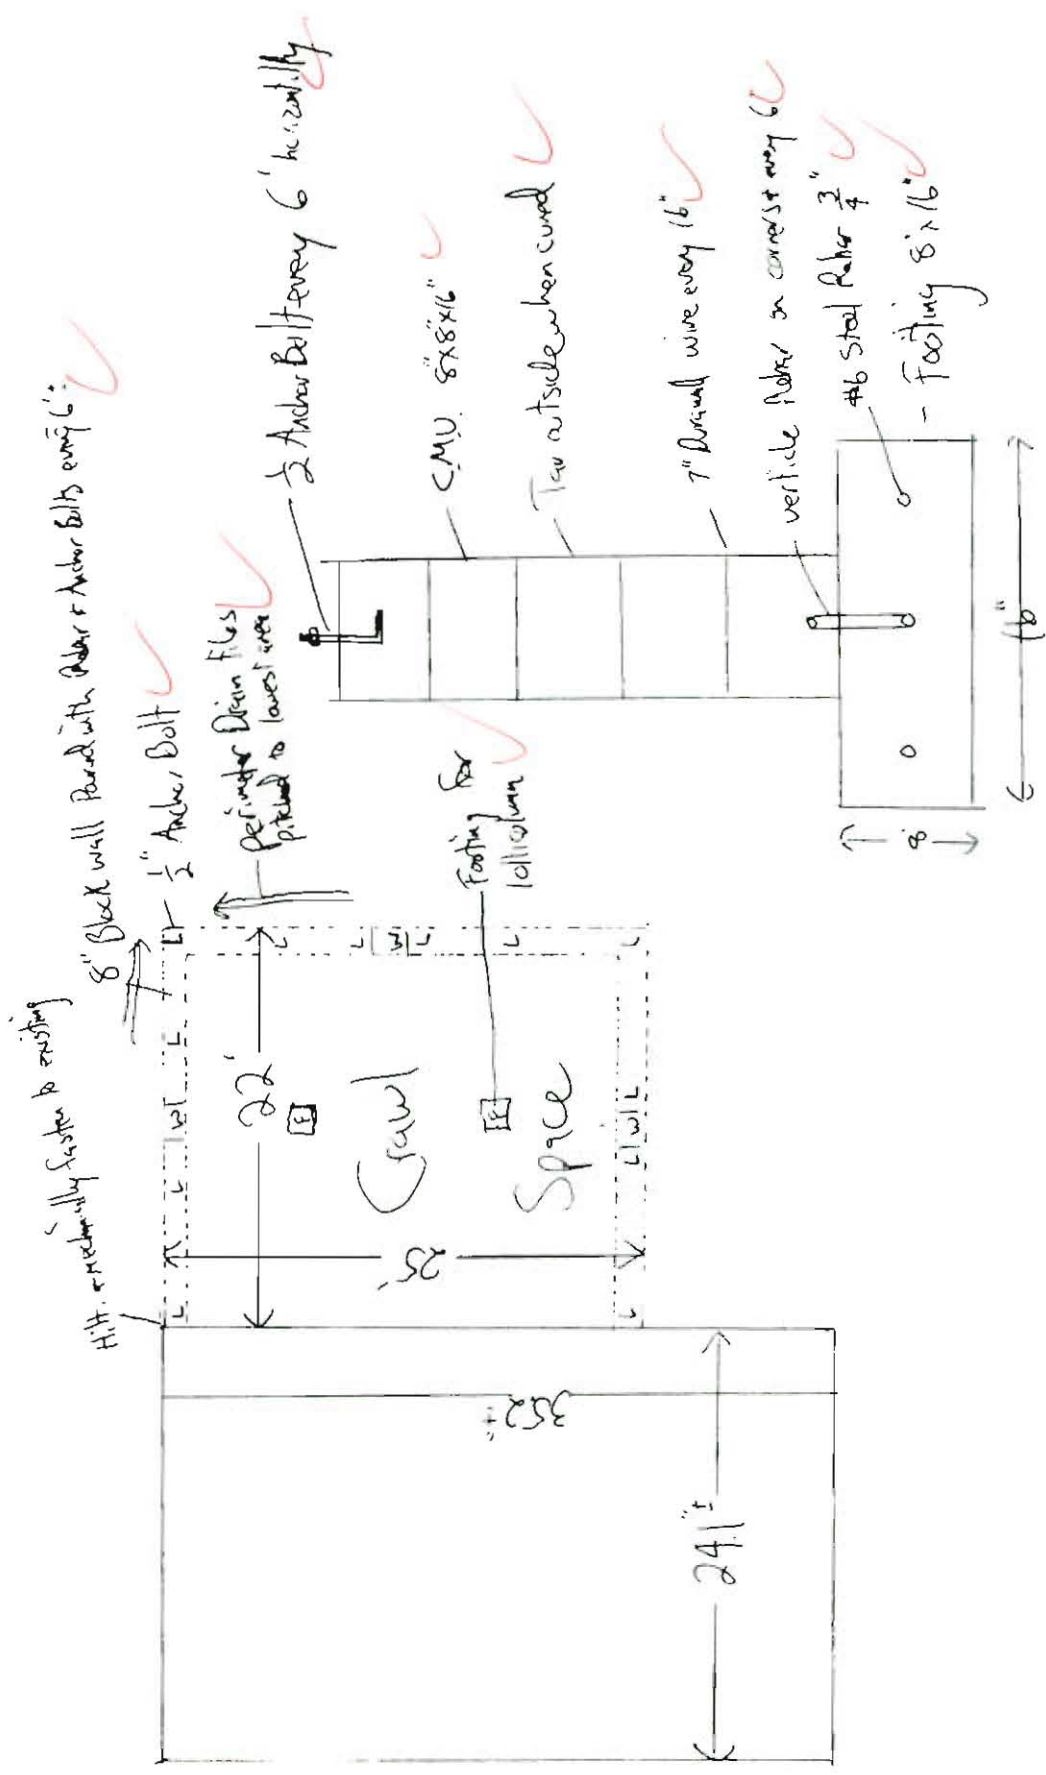 Hilti & mechanically fasten to existing
8" Block wall Poured with Rebar & Anchor Bolts every 6'
1/2" Anchor Bolt
Perimeter Drain tiles
pitched to lowest area
22'
25'
Crawl
Space
F
F
Footing for
lollicolumn
L
L
W
L
L
L
L
W
L
L
L
L
W
L
L
352"±
241"±
1/2 Anchor Bolt every 6' horizontally
C.M.U. 8"x8"x16"
Tar outside when cured
7" Durawall wire every 16"
verticle Rebar on corners & every 6'
#6 Steel Rebar 3/4"
- Footing 8"x16"
8"
16"